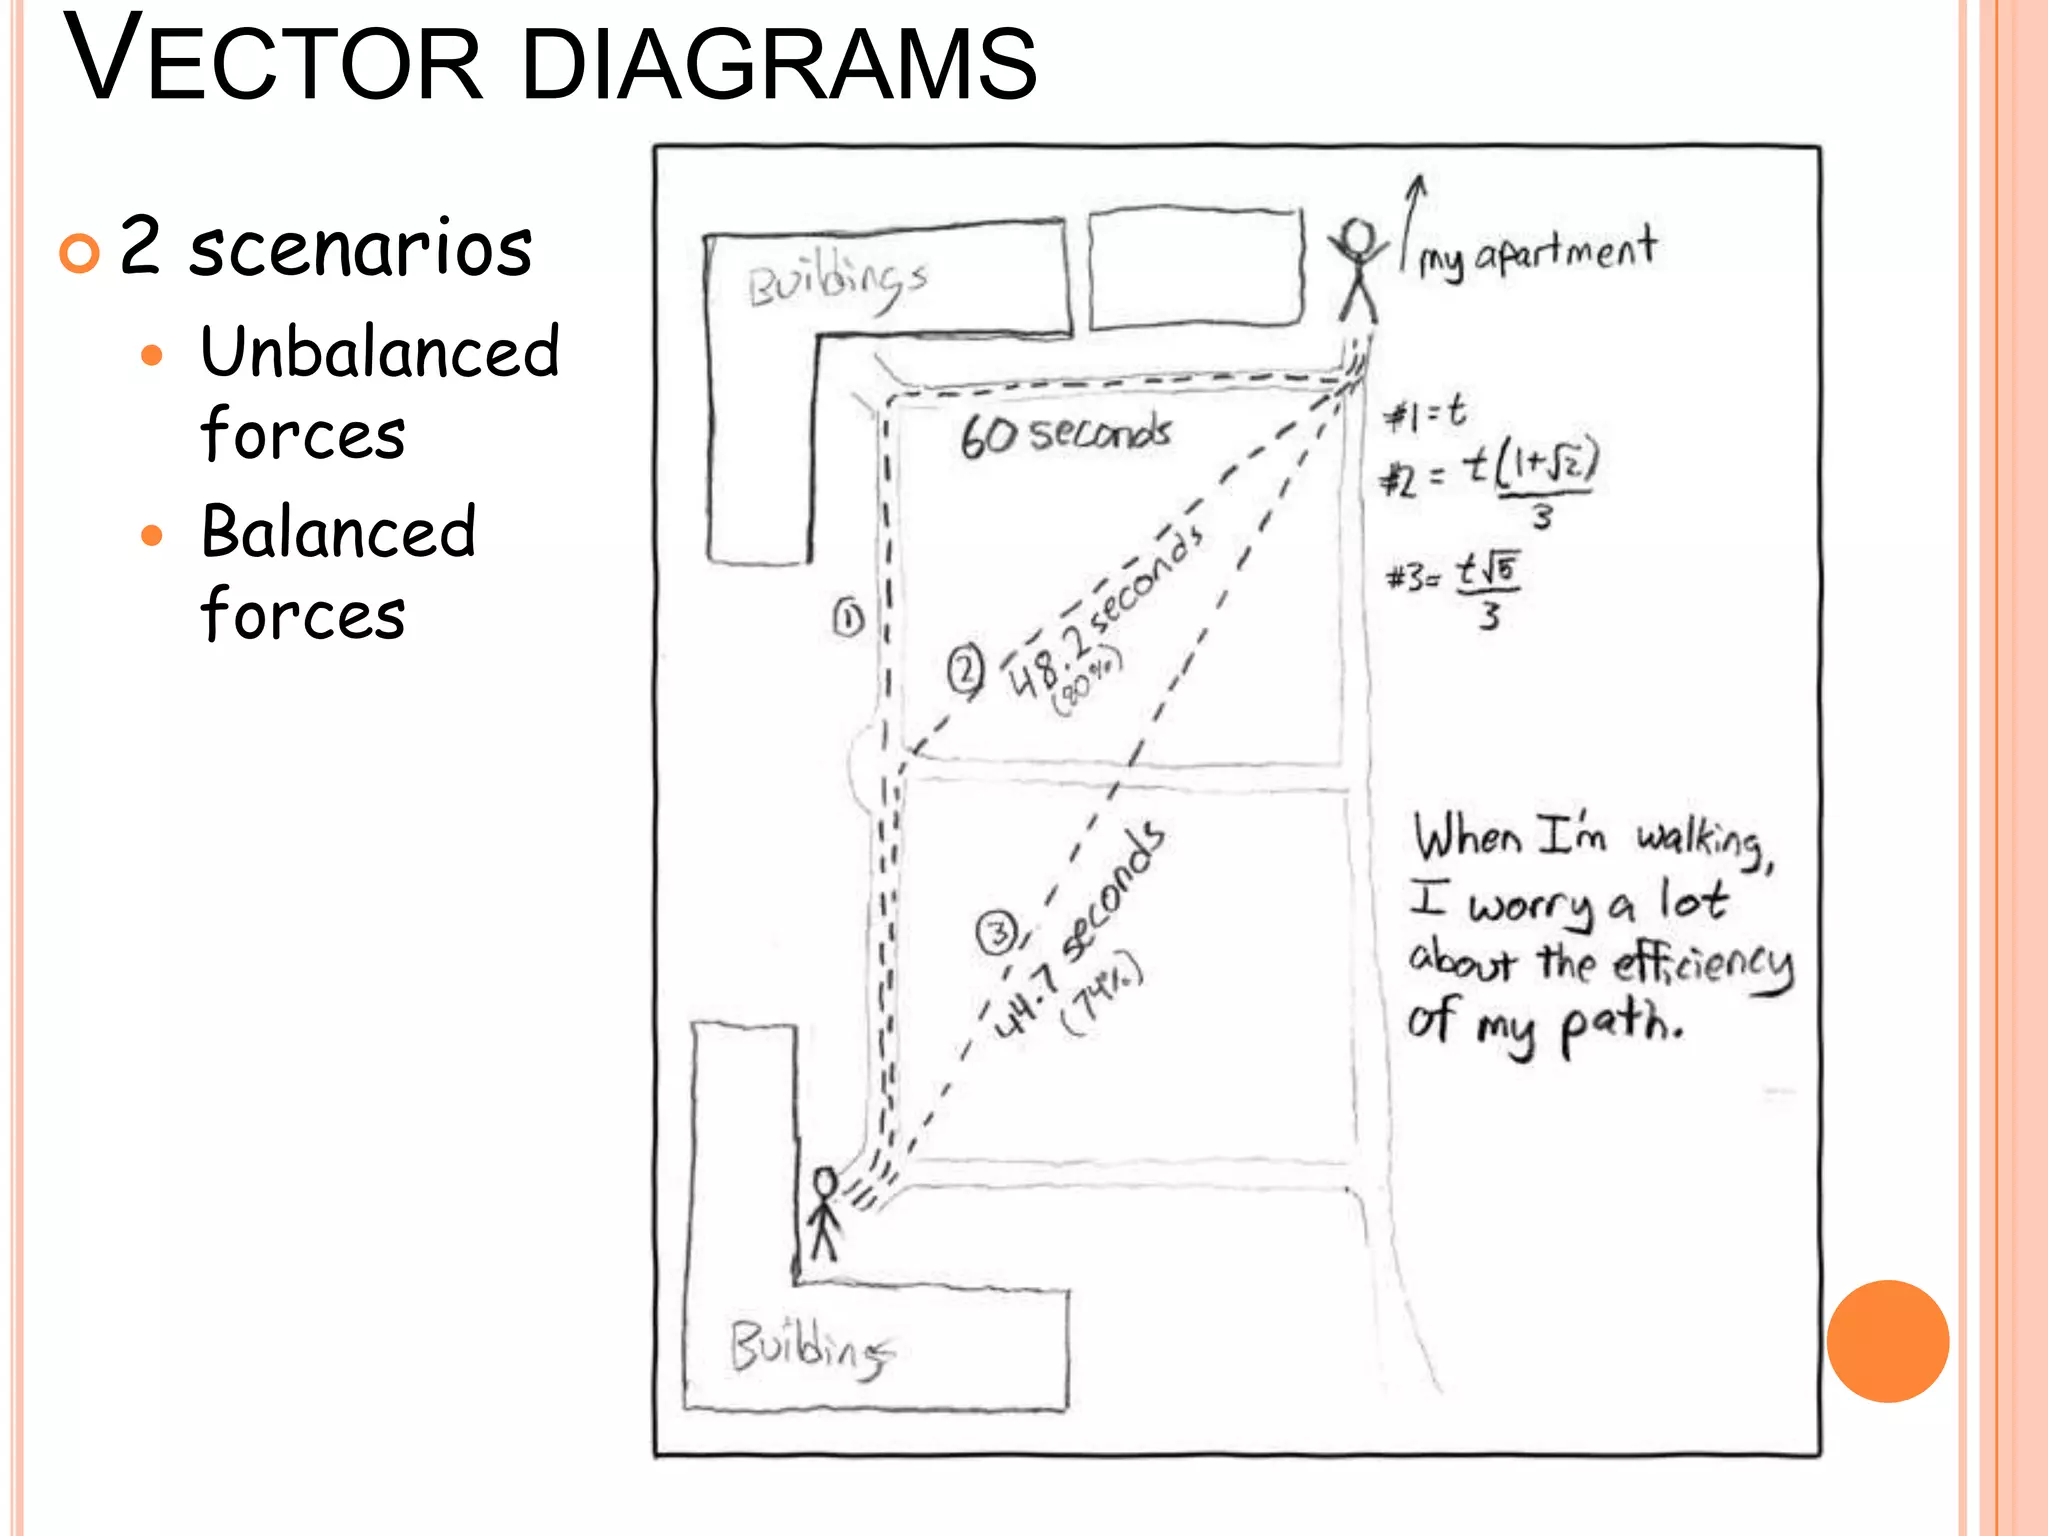 VECTOR DIAGRAMS
2 scenarios
Unbalanced
forces
Balanced
forces
Buildings
my apartment
60 seconds
#1=t
#2 = t(1+√2)
3
#3= t√5
3
①
②
48.2 seconds
(80%)
③
44.7 seconds
(74%)
When I'm walking,
I worry a lot
about the efficiency
of my path.
Buildings